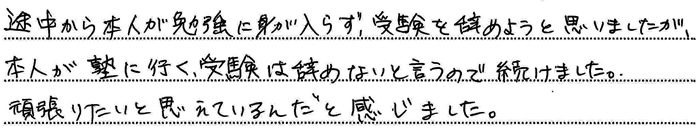 途中から本人が勉強に身が入らず、受験を辞めようと思いましたが、
本人が塾に行く、受験は辞めないと言うので続けました。
頑張りたいと思えているんだと感じました。